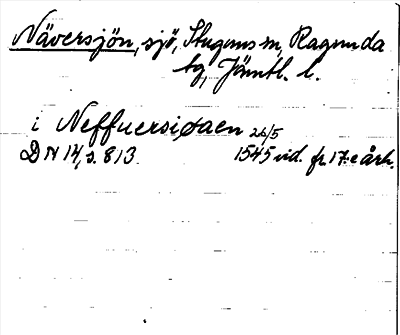 Näversjön, sjö, Stuguns sn, Ragunda
tg, Jämtl. l.
i Neffuersiøaen 26/5
DN 14, s. 813. 1545 vid. fr. 17:e årh.